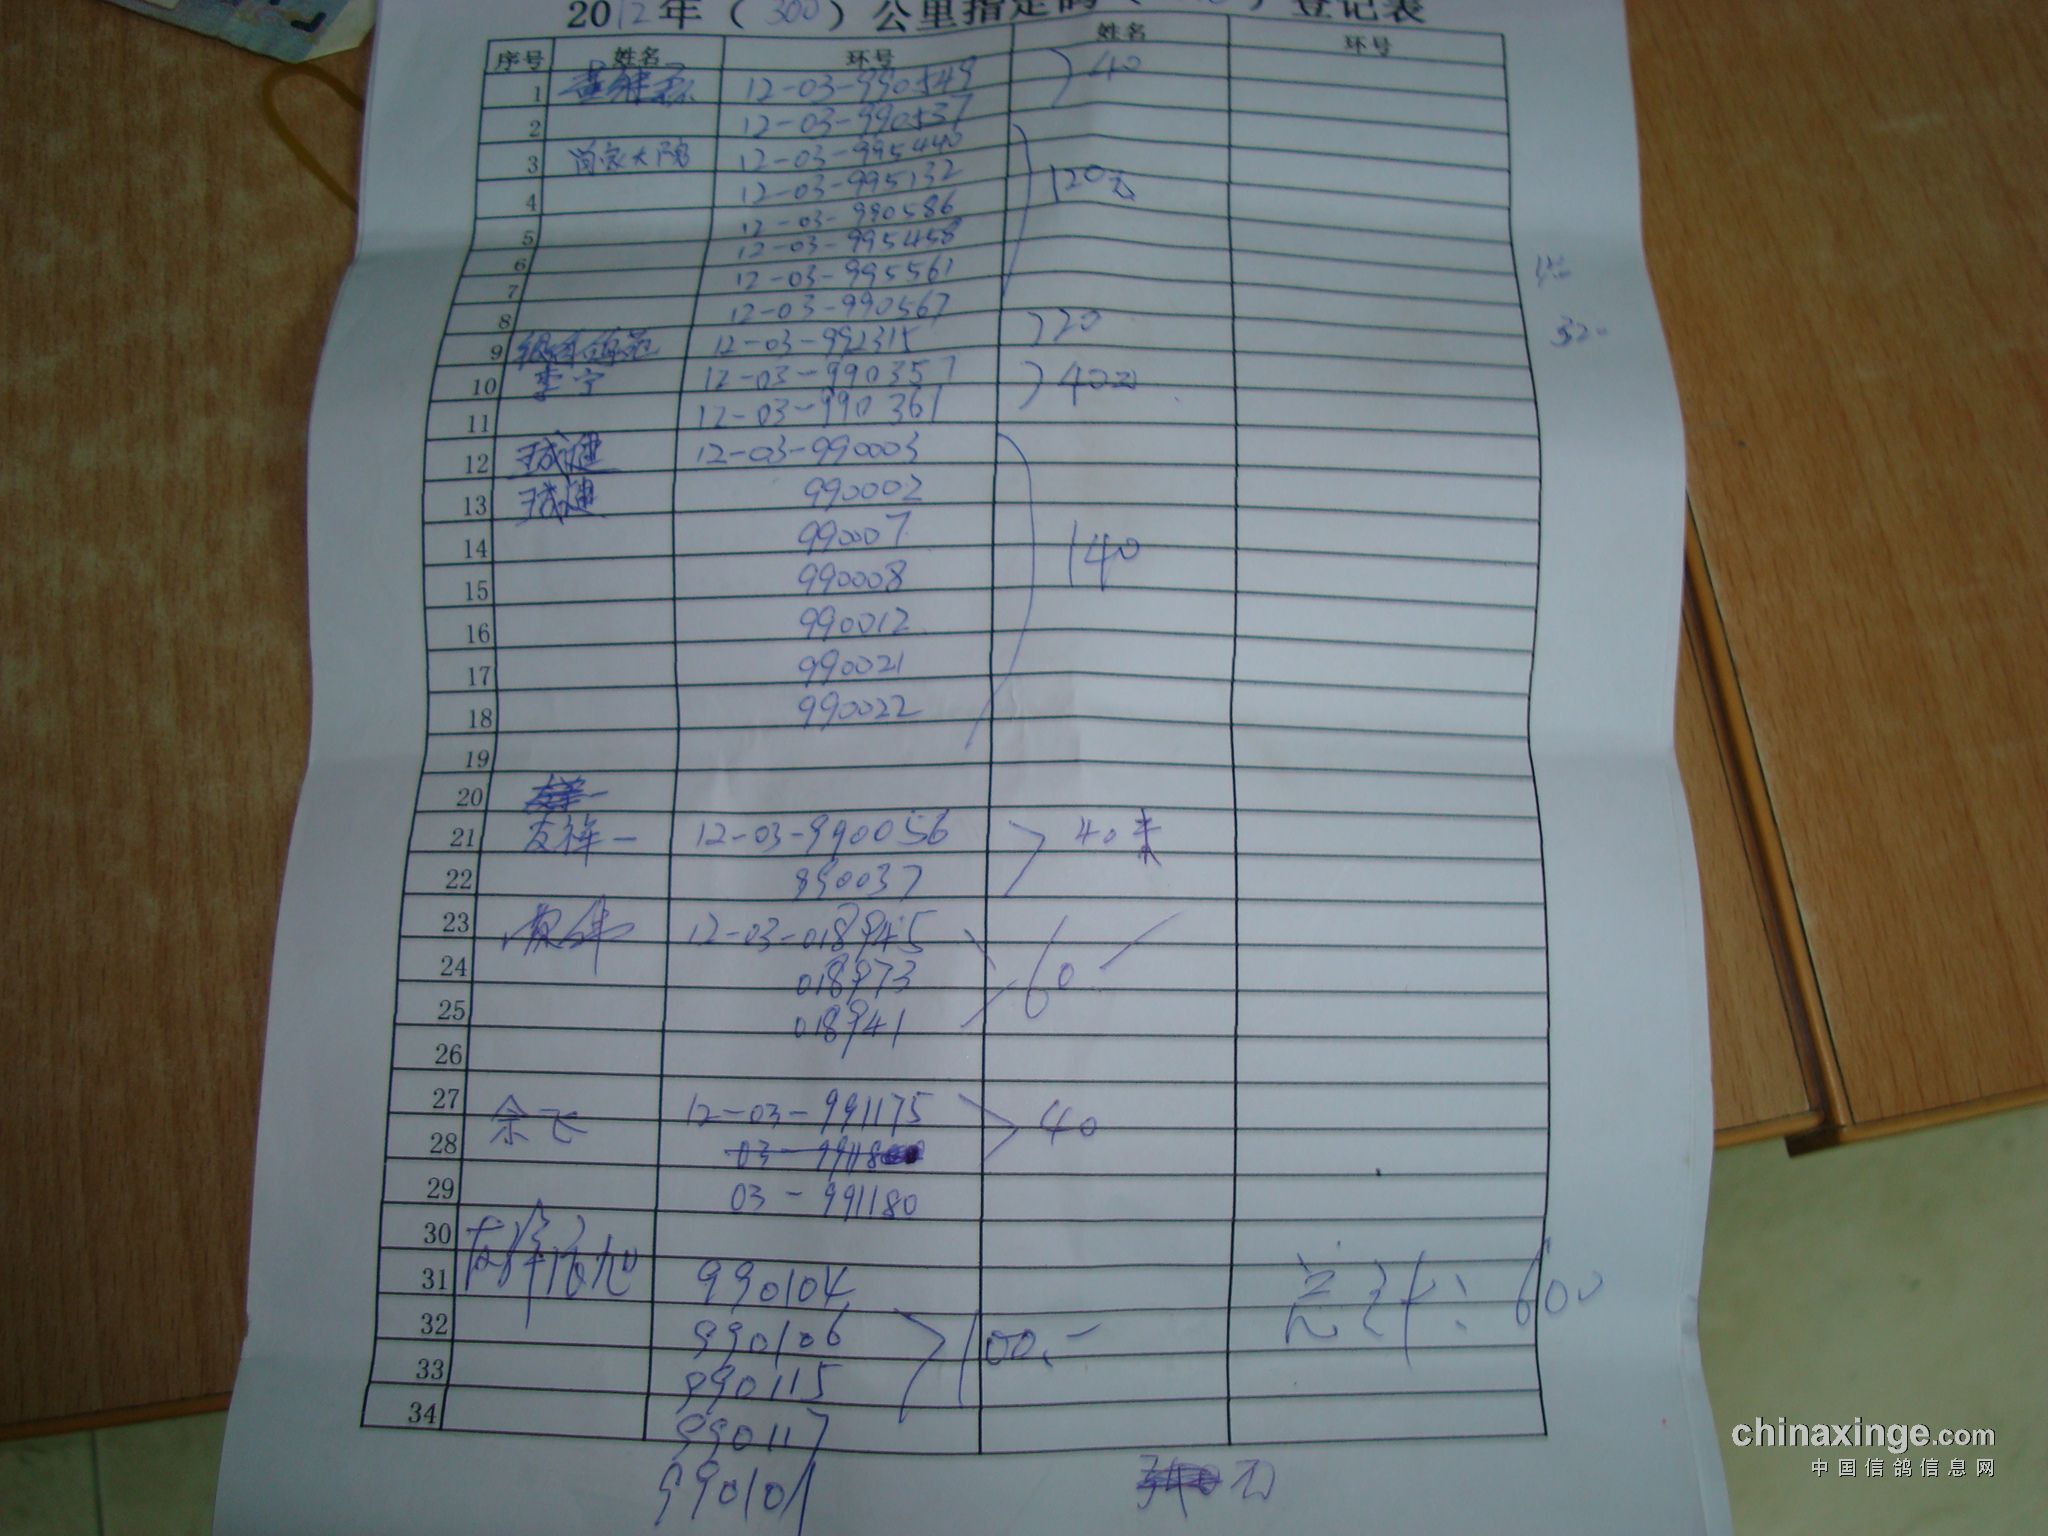 2012年（300）公里指定鸽（）登记表
序号 姓名 环号 姓名 环号
1 12-03-990549 40
2 12-03-990537
3 尚家大院 12-03-995440
4 12-03-995132 120元
5 12-03-990586
6 12-03-995458
7 12-03-995561
8 12-03-990567 320
9 12-03-992315 20
10 李宁 12-03-990357 40元
11 12-03-990361
12 12-03-990003
13 990002
14 990007 140
15 990008
16 990012
17 990021
18 990022
19
20
21 友祥一 12-03-990056 40
22 890037
23 12-03-018945
24 018973 60
25 018941
26
27 12-03-991175 40
28 余飞
29 03-991180
30
31 990104 总计：600
32 990106 100
33 990115
34 990117
990101
chinaxinge.com
中国信鸽信息网